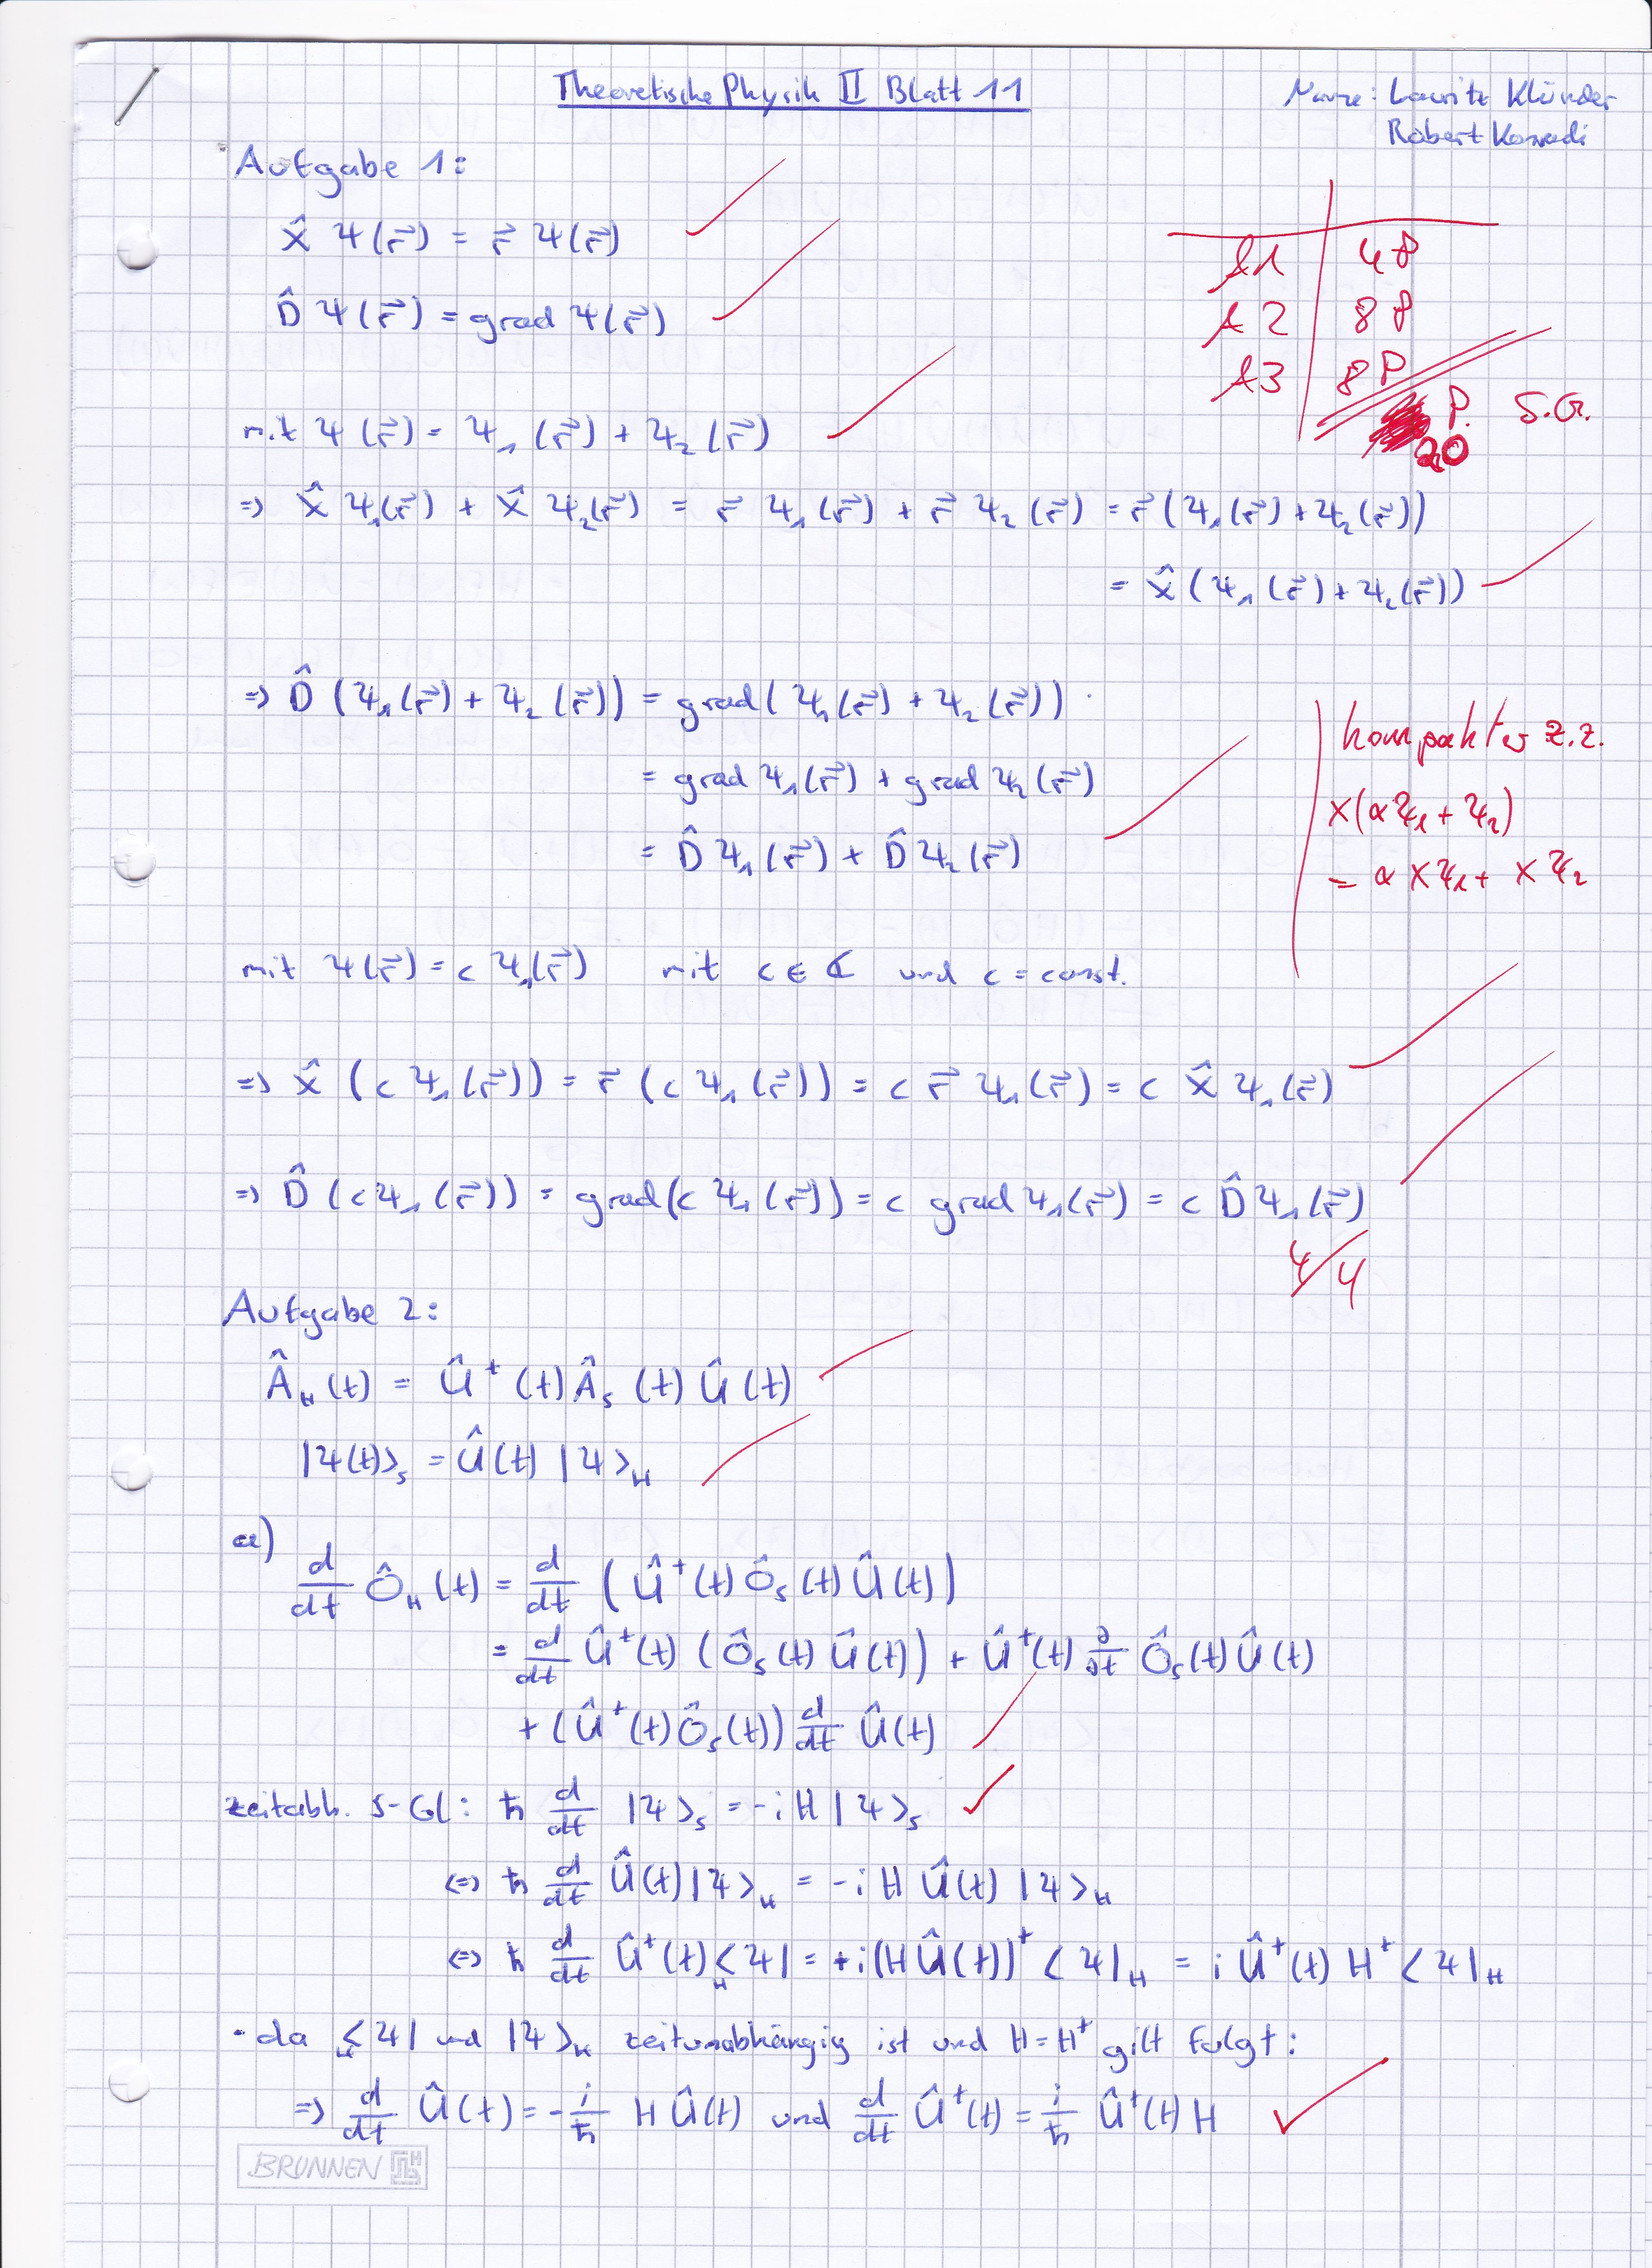 Theoretische Physik II Blatt 11
Name: Lauritz Klünder
Robert Konradi
Aufgabe 1:
X̂ Ψ(r⃗) = r⃗ Ψ(r⃗)
D̂ Ψ(r⃗) = grad Ψ(r⃗)
A1 | 4P
A2 | 8P
A3 | 8P
P. S.G.
20
mit Ψ(r⃗) = Ψ₁(r⃗) + Ψ₂(r⃗)
⇒ X̂ Ψ₁(r⃗) + X̂ Ψ₂(r⃗) = r⃗ Ψ₁(r⃗) + r⃗ Ψ₂(r⃗) = r⃗(Ψ₁(r⃗) + Ψ₂(r⃗))
= X̂(Ψ₁(r⃗) + Ψ₂(r⃗))
⇒ D̂(Ψ₁(r⃗) + Ψ₂(r⃗)) = grad(Ψ₁(r⃗) + Ψ₂(r⃗))
= grad Ψ₁(r⃗) + grad Ψ₂(r⃗)
= D̂ Ψ₁(r⃗) + D̂ Ψ₂(r⃗)
kompakter z.z.
X(αΨ₁ + Ψ₂)
= α XΨ₁ + XΨ₂
mit Ψ(r⃗) = c Ψ₁(r⃗) mit c ∈ ℂ und c = const.
⇒ X̂ (c Ψ₁(r⃗)) = r⃗ (c Ψ₁(r⃗)) = c r⃗ Ψ₁(r⃗) = c X̂ Ψ₁(r⃗)
⇒ D̂ (c Ψ₁(r⃗)) = grad(c Ψ₁(r⃗)) = c grad Ψ₁(r⃗) = c D̂ Ψ₁(r⃗)
4/4
Aufgabe 2:
Â_H(t) = Û⁺(t) Â_S(t) Û(t)
|Ψ(t)>_S = Û(t) |Ψ>_H
a)
d/dt Ô_H(t) = d/dt (Û⁺(t) Ô_S(t) Û(t))
= d/dt Û⁺(t) (Ô_S(t) Û(t)) + Û⁺(t) ∂/∂t Ô_S(t) Û(t)
+ (Û⁺(t) Ô_S(t)) d/dt Û(t)
zeitabh. S-Gl: ħ d/dt |Ψ>_S = -i H |Ψ>_S
⇔ ħ d/dt Û(t) |Ψ>_H = -i H Û(t) |Ψ>_H
⇔ ħ d/dt Û⁺(t) _H<Ψ| = +i(H Û(t))⁺ <Ψ|_H = i Û⁺(t) H⁺ <Ψ|_H
· da _H<Ψ| und |Ψ>_H zeitunabhängig ist und H = H⁺ gilt folgt:
⇒ d/dt Û(t) = -i/ħ H Û(t) und d/dt Û⁺(t) = i/ħ Û⁺(t) H
BRUNNEN